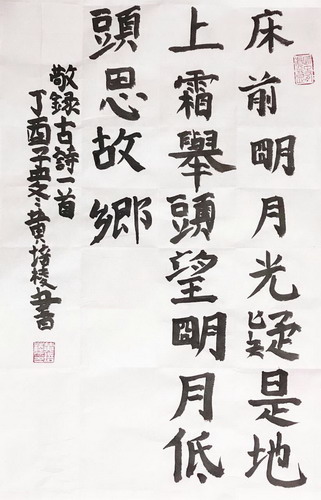 床前明月光疑是地
上霜舉頭望明月低
頭思故鄉
敬錄古詩一首
丁酉孟冬黃培棱書